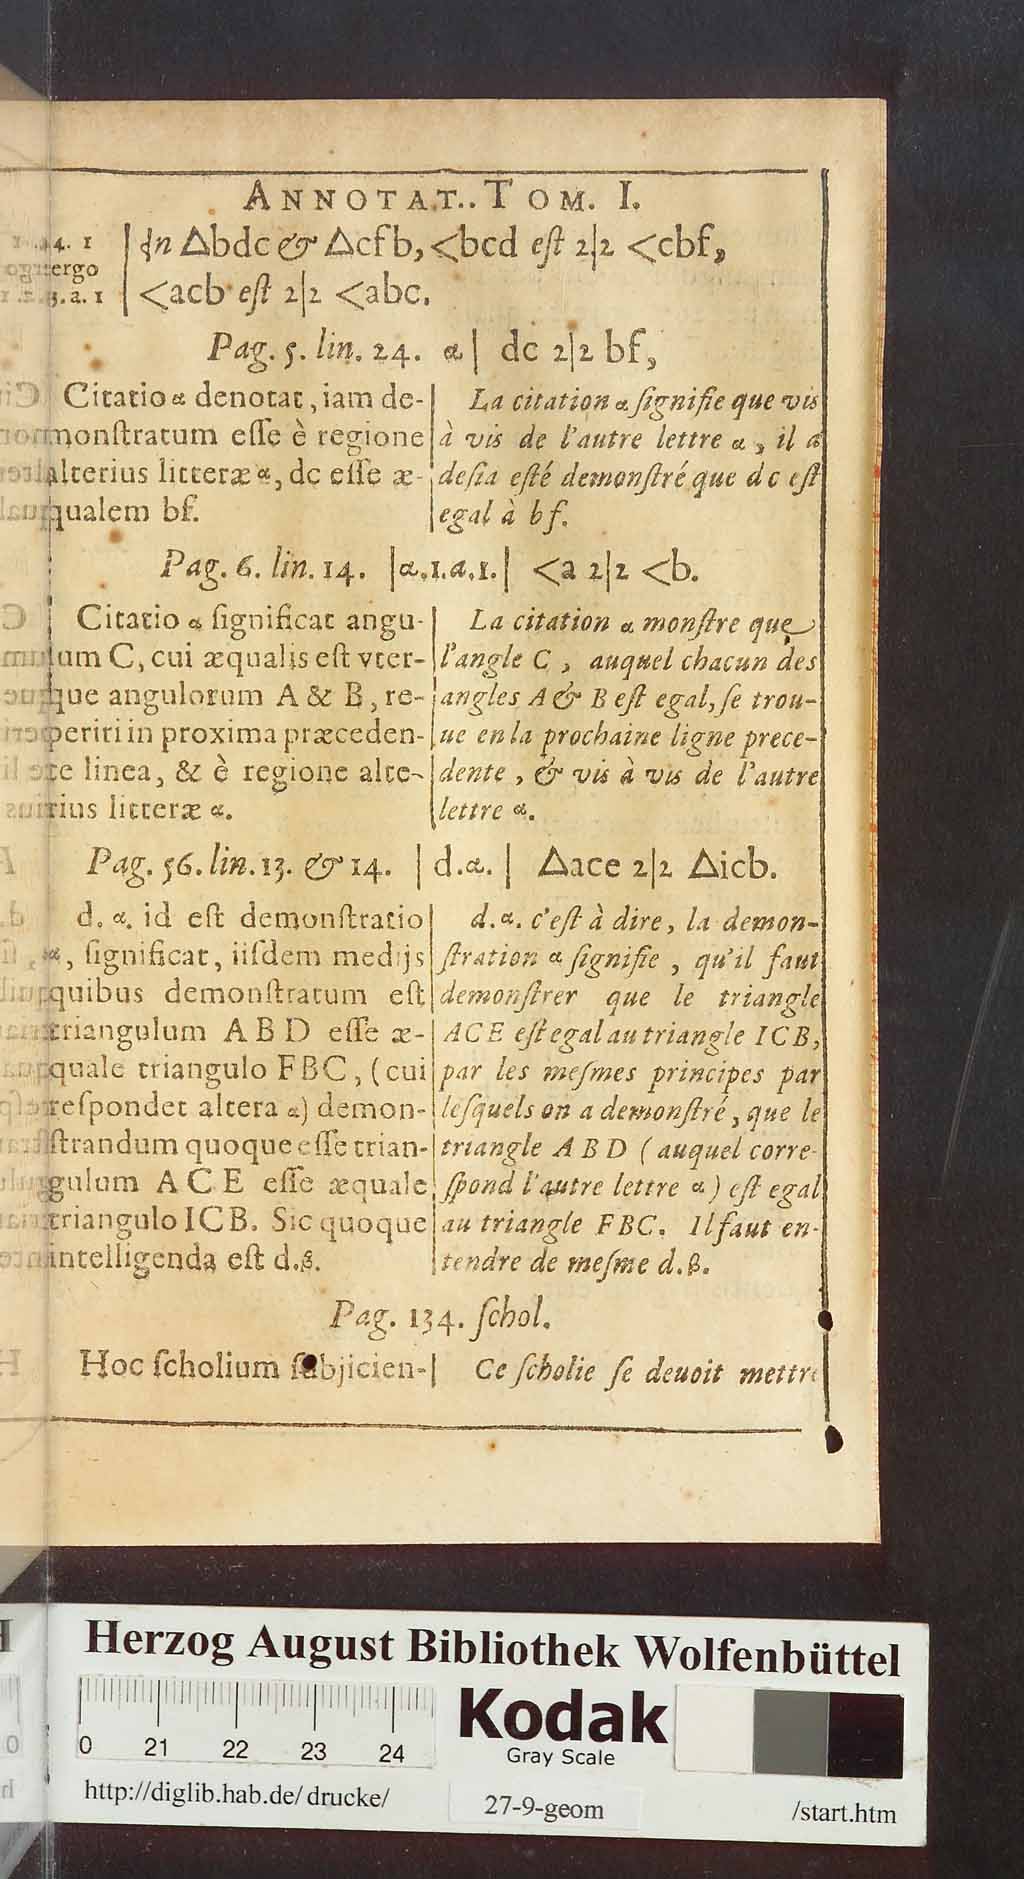 ANNOTAT.. TOM. I.
4. 1 | In Δbdc & Δcfb, <bcd eſt 2|2 <cbf,
ergo
3. a. 1 | <acb eſt 2|2 <abc.
Pag. 5. lin. 24. α | dc 2|2 bf,
Citatio α denotat, iam de-
monſtratum eſſe è regione
alterius litteræ α, dc eſſe æ-
qualem bf.
La citation α ſignifie que vis
à vis de l'autre lettre α, il a
deſia eſté demonſtré que dc eſt
egal à bf.
Pag. 6. lin. 14. |α.1.a.1.| <a 2|2 <b.
Citatio α ſignificat angu-
lum C, cui æqualis eſt vter-
que angulorum A & B, re-
periri in proxima præceden-
te linea, & è regione alte-
rius litteræ α.
La citation α monſtre que
l'angle C, auquel chacun des
angles A & B eſt egal, ſe trou-
ue en la prochaine ligne prece-
dente, & vis à vis de l'autre
lettre α.
Pag. 56. lin. 13. & 14. | d.α. | Δace 2|2 Δicb.
d. α. id eſt demonſtratio
α, ſignificat, iiſdem medijs
quibus demonſtratum eſt
triangulum ABD eſſe æ-
quale triangulo FBC, (cui
reſpondet altera α) demon-
ſtrandum quoque eſſe trian-
gulum ACE eſſe æquale
triangulo ICB. Sic quoque
intelligenda eſt d.β.
d.α. c'eſt à dire, la demon-
ſtration α ſignifie, qu'il faut
demonſtrer que le triangle
ACE eſt egal au triangle ICB,
par les meſmes principes par
leſquels on a demonſtré, que le
triangle ABD (auquel corre-
ſpond l'autre lettre α) eſt egal
au triangle FBC. Il faut en-
tendre de meſme d.β.
Pag. 134. ſchol.
Hoc ſcholium ſubjicien-|
Ce ſcholie ſe deuoit mettre
Herzog August Bibliothek Wolfenbüttel
0 21 22 23 24
Kodak
Gray Scale
http://diglib.hab.de/drucke/ 27-9-geom /start.htm